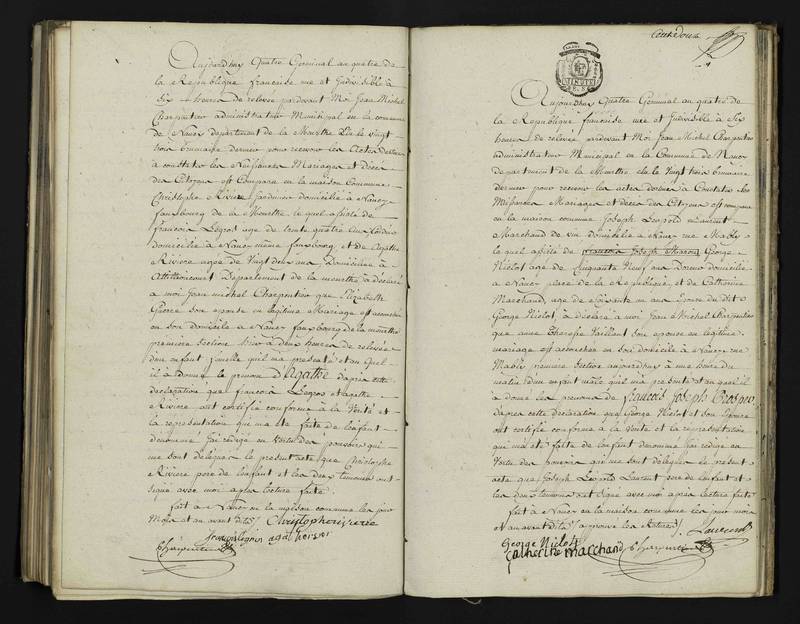 Aujourdhuy Quatre Germinal an quatre de
la Republique francaise une et Indivisible à
Six heures de relevée pardevant Moi Jean Michel
Charpentier administrateur Municipal en la commune
de Nancy departement de la Meurthe Elu le vingt
trois brumaire dernier pour recevoir les Actes destinés
à constater les Naissances Mariages et Décès
des Citoyens est Comparu en la maison Commune
Christophe Riviere Jardinier domicilié à Nancy
faubourg de la Meurthe le quel assisté de
francois Legros agé de trente quatre ans
domicilié à Nancy même faubourg et de Agathe
Riviere agée de Vingt deux ans Domiciliée à
Departement de la meurthe a déclaré
a moi Jean michel Charpentier que Elizabeth
Pierre son epouse en legitime Mariage est accouchée
en son domicile a Nancy faubourg de la meurthe
premiere Section hier à deux heures de relevée
d'un enfant femelle quil m'a presenté et au quel
il à donné le prenom d'Agathe d'apres cette
declaration que francois Legros et agathe
Riviere ont certifié conforme à la Verité et
la representation qui m'a été faite de l'enfant
denommé J'ai redigé en vertu des pouvoirs qui
me sont delegués le present acte que Christophe
Riviere pere de l'enfant et les deux temoins ont
signé avec moi apres lecture faite
fait a Nancy en la maison commune les jour
Mois et an avant dits Christophe rivierre
agathe
Charpentier
Aujourdhuy Quatre Germinal an quatre de
la Republique francaise une et Indivisible à Six
heures de relevée pardevant Moi Jean Michel Charpentier
administrateur Municipal en la Commune de Nancy
departement de la Meurthe elu le Vingt trois brumaire
dernier pour recevoir les actes destinés à Constater les
Naissances Mariages et décès des Citoyens est comparu
en la maison commune Joseph Leopold Laurent
Marchand de vin domicilié à Nancy rue Mably
le quel assisté de francois Joseph George
Niclot agé de Cinquante Neuf ans domicilié
a Nancy place de la Republique et de Catherine
Marchand, agée de Soixante un ans Epouse du dit
George Niclot, à déclaré à moi Jean Michel Charpentier
que anne Therese Vaillant son epouse en legitime
mariage est accouchée en son domicile à Nancy rue
Mably premiere Section aujourdhuy à une heure du
matin d'un enfant male quil m'a presenté et au quel il
à donné les prenoms de francois Joseph Prosper,
d'apres cette déclaration que George Niclot et son Epouse
ont certifié conforme à la Verité et la representation
qui m'a été faite de l'enfant denommé J'ai redigé en
Vertu des pouvoirs qui me sont delegués le present
acte que Joseph Leopold Laurent pere de l'enfant et
les deux temoins ont signé avec moi apres lecture faite
fait à Nancy en la maison commune les jour mois
et an avant dits Laurent
George Niclot
Catherine Marchand Charpentier